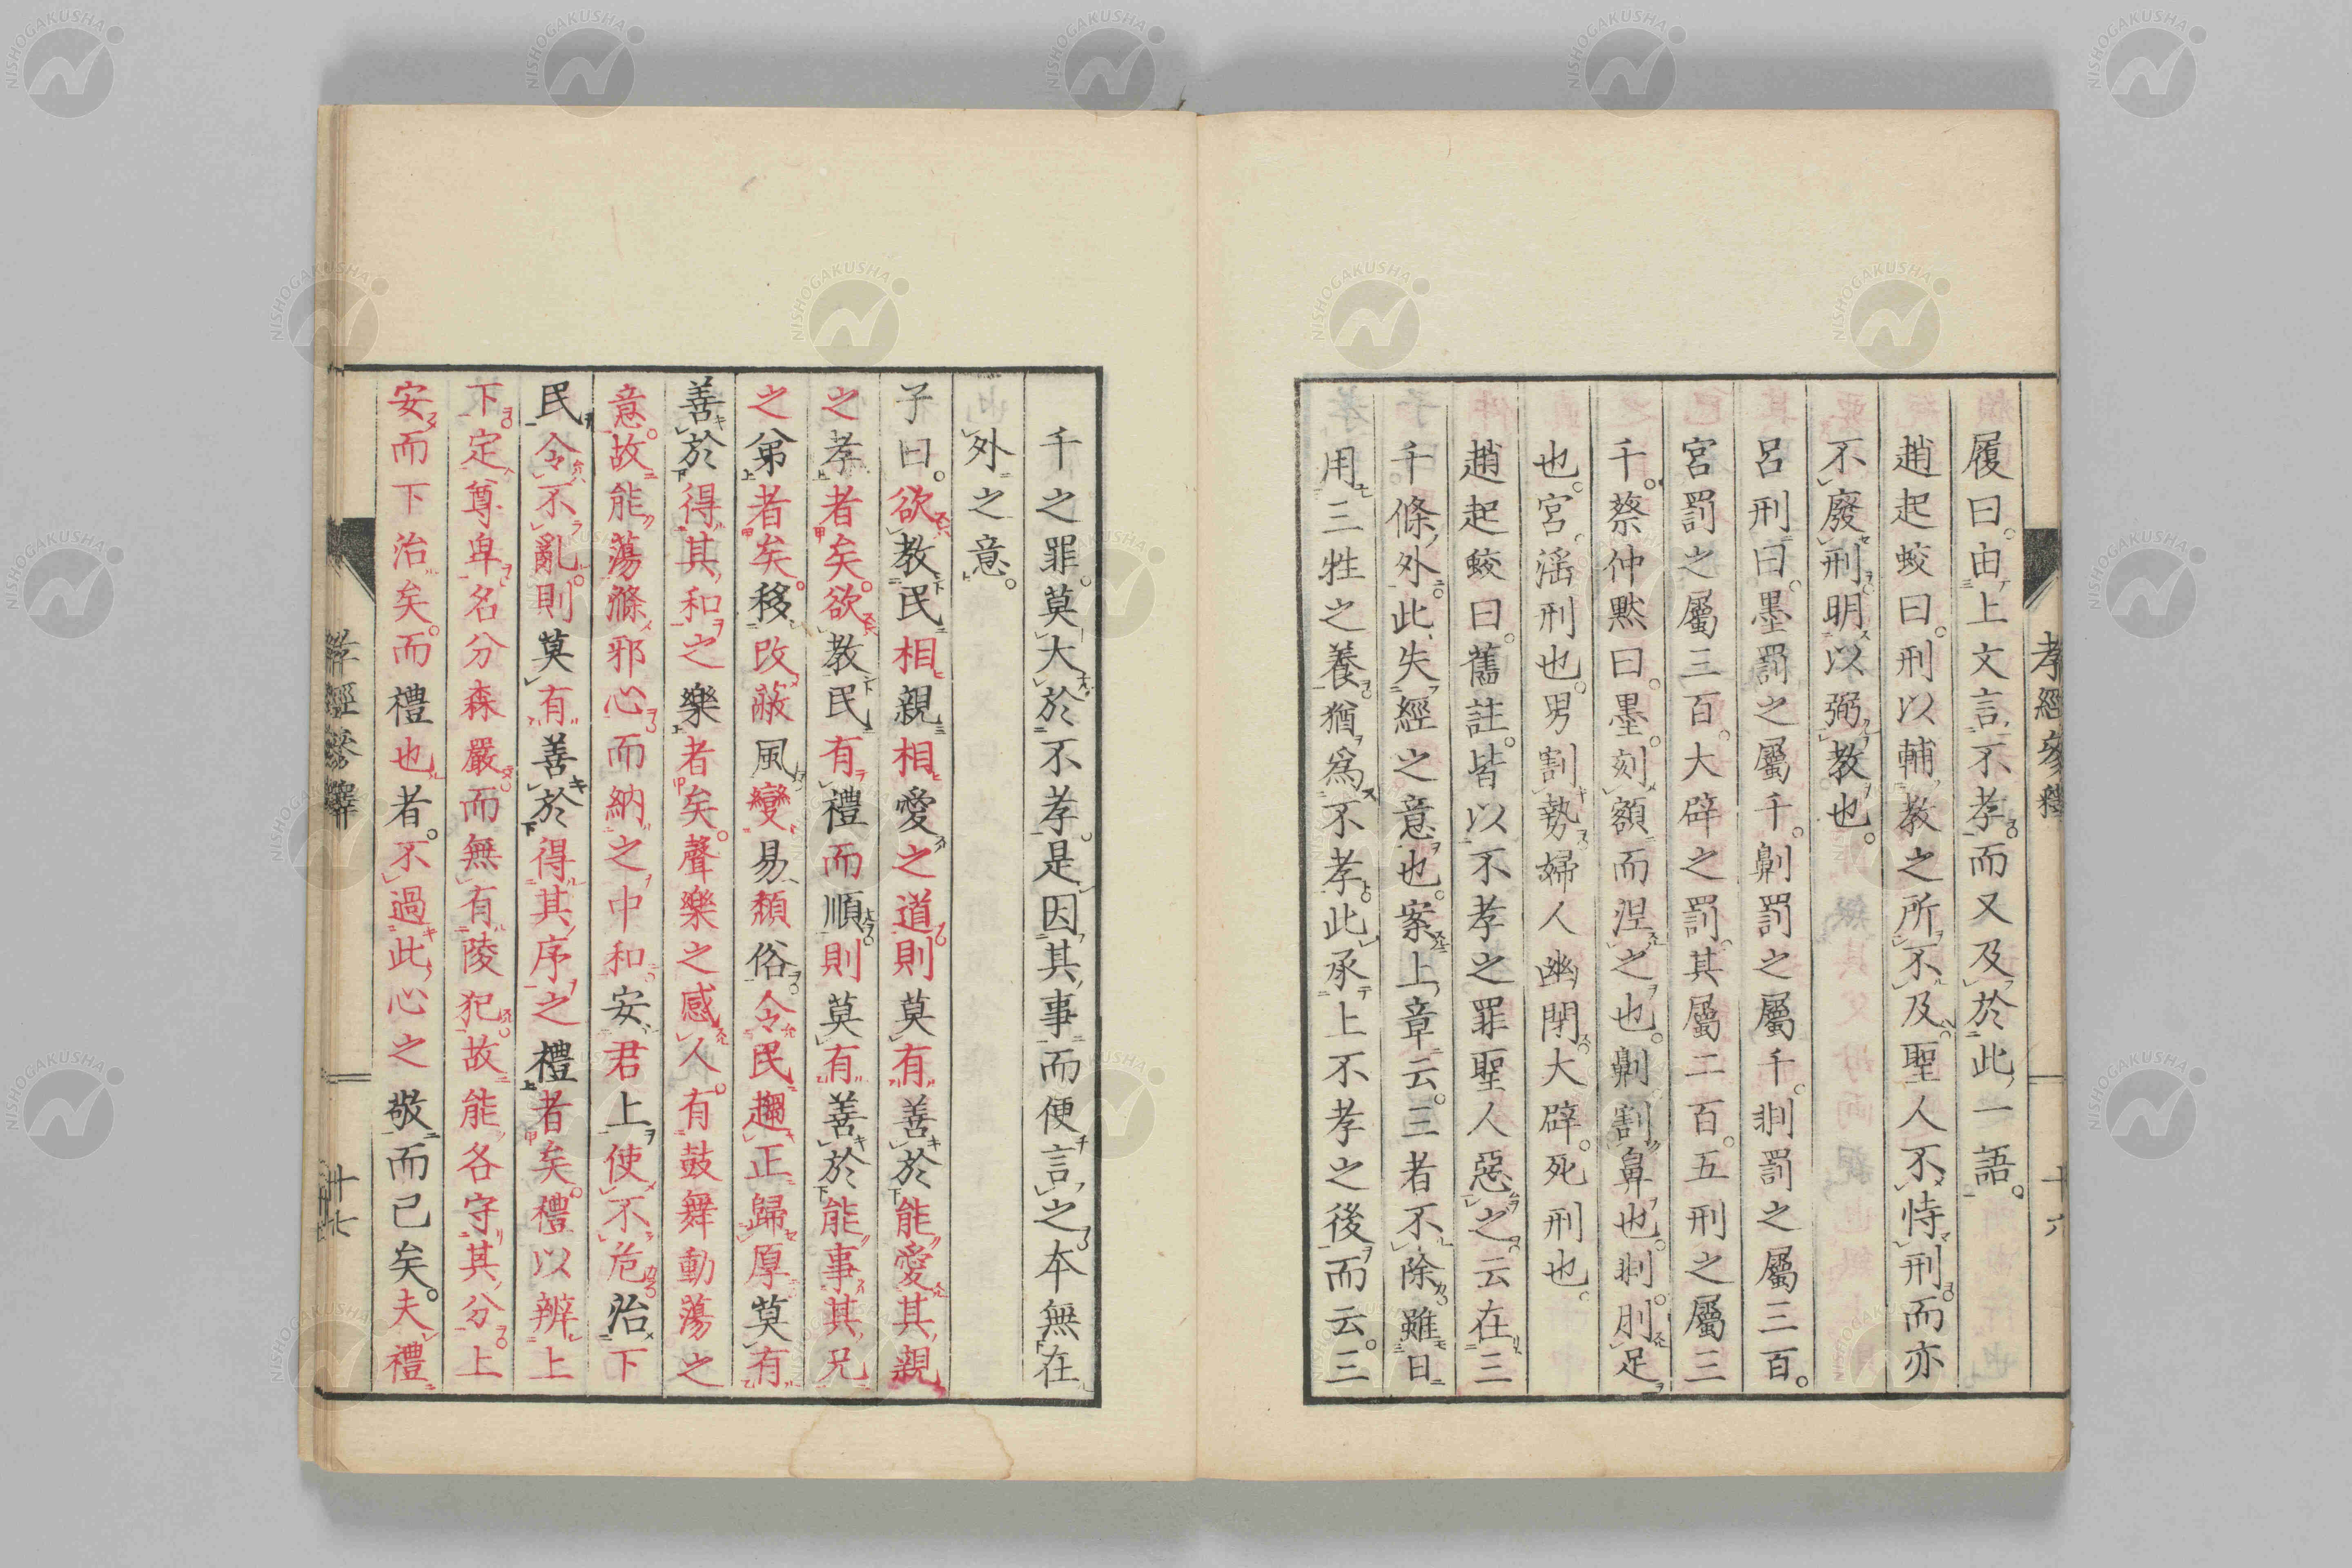 孝經參釋
十六
履曰。由上文言不孝。而又及於此一語。
趙起蛟曰。刑以輔教之所不及。聖人不恃刑。而亦
不廢刑。明以弼教也。
呂刑曰。墨罰之屬千。劓罰之屬千。剕罰之屬三百。
宮罰之屬三百。大辟之罰其屬二百。五刑之屬三
千。蔡仲默曰。墨。刻額而涅之也。劓割鼻也。剕。刖足
也。宮。淫刑也。男割勢。婦人幽閉。大辟。死刑也。
趙起蛟曰。舊註。皆以不孝之罪聖人惡之。云在三
千條外。此失經之意也。案上章云。三者不除。雖日
用三牲之養。猶爲不孝。此承上不孝之後。而云。三
千之罪。莫大於不孝。是因其事而便言之。本無在
外之意。
子曰。欲教民相親相愛之道。則莫有善於能愛其親
之孝者矣。欲教民有禮而順。則莫有善於能事其兄
之弟者矣。移改蔽風變易頹俗。令民趨正歸厚。莫有
善於得其和之樂者矣。聲樂之感人。有鼓舞動蕩之
意。故能蕩滌邪心。而納之中和。安君上使不危。治下
民令不亂。則莫有善於得其序之禮者矣。禮以辨上
下。定尊卑。名分森嚴。而無有陵犯。故能各守其分。上
安而下治矣。而禮也者。不過此心之敬而已矣。夫禮
孝經參釋
十七
NISHOGAKUSHA